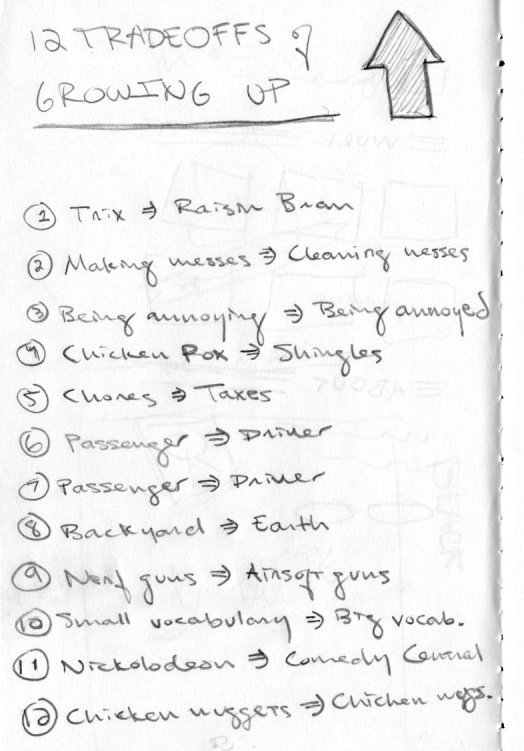 12 TRADEOFFS of
GROWING UP
1 Trix ⇒ Raisin Bran
2 Making messes ⇒ Cleaning messes
3 Being annoying ⇒ Being annoyed
4 Chicken Pox ⇒ Shingles
5 Chores ⇒ Taxes
6 Passenger ⇒ Driver
7 Passenger ⇒ Driver
8 Backyard ⇒ Earth
9 Nerf guns ⇒ Airsoft guns
10 Small vocabulary ⇒ Big vocab.
11 Nickolodeon ⇒ Comedy Central
12 Chicken nuggets ⇒ Chicken